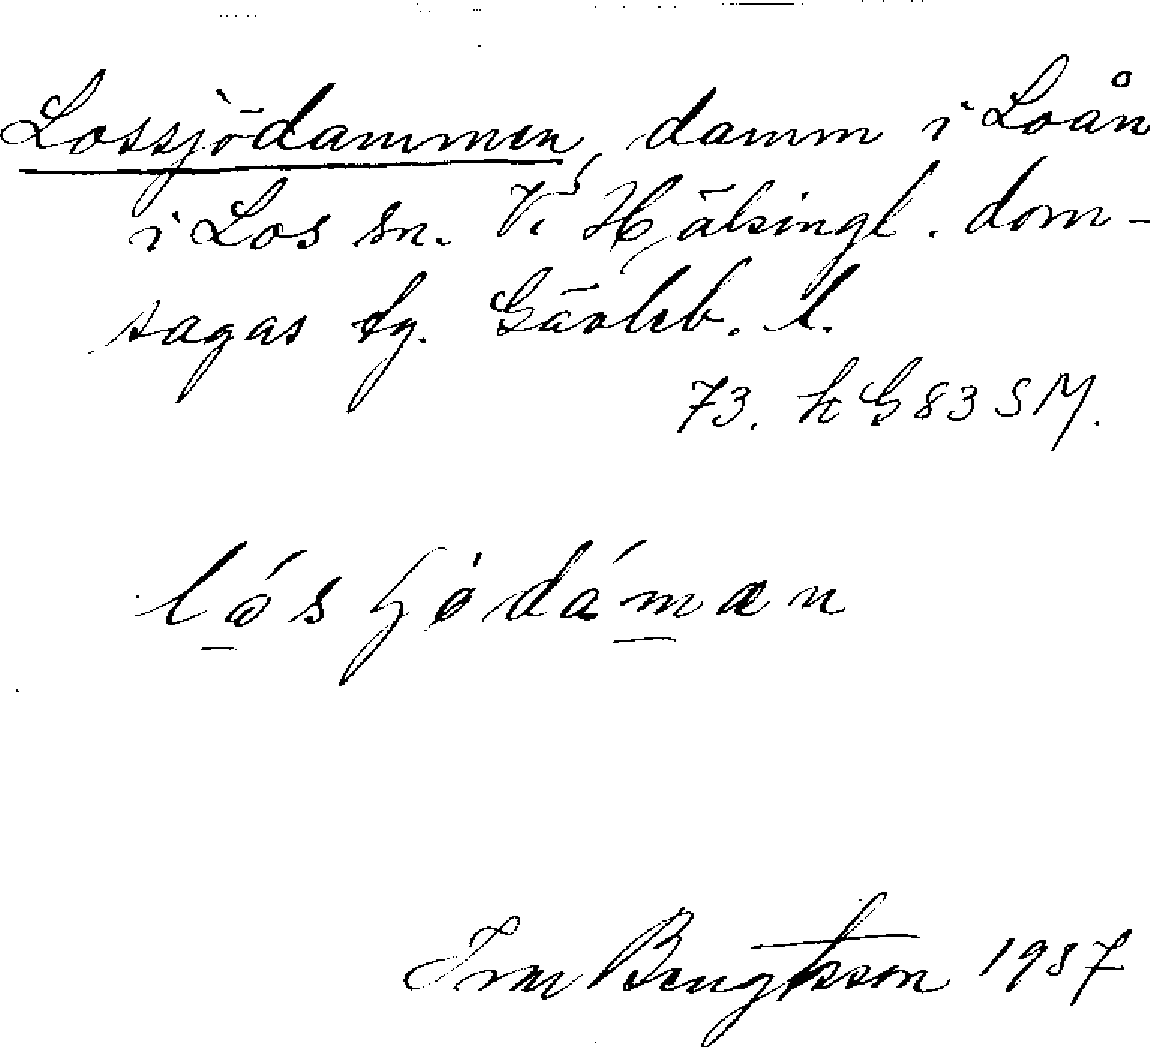 Lossjödammen, damm i Loån
i Los sn. V. Hälsingl. dom-
sagas tg. Gävleb. l.
73. h G 83 SM.
Bengtsson 1937